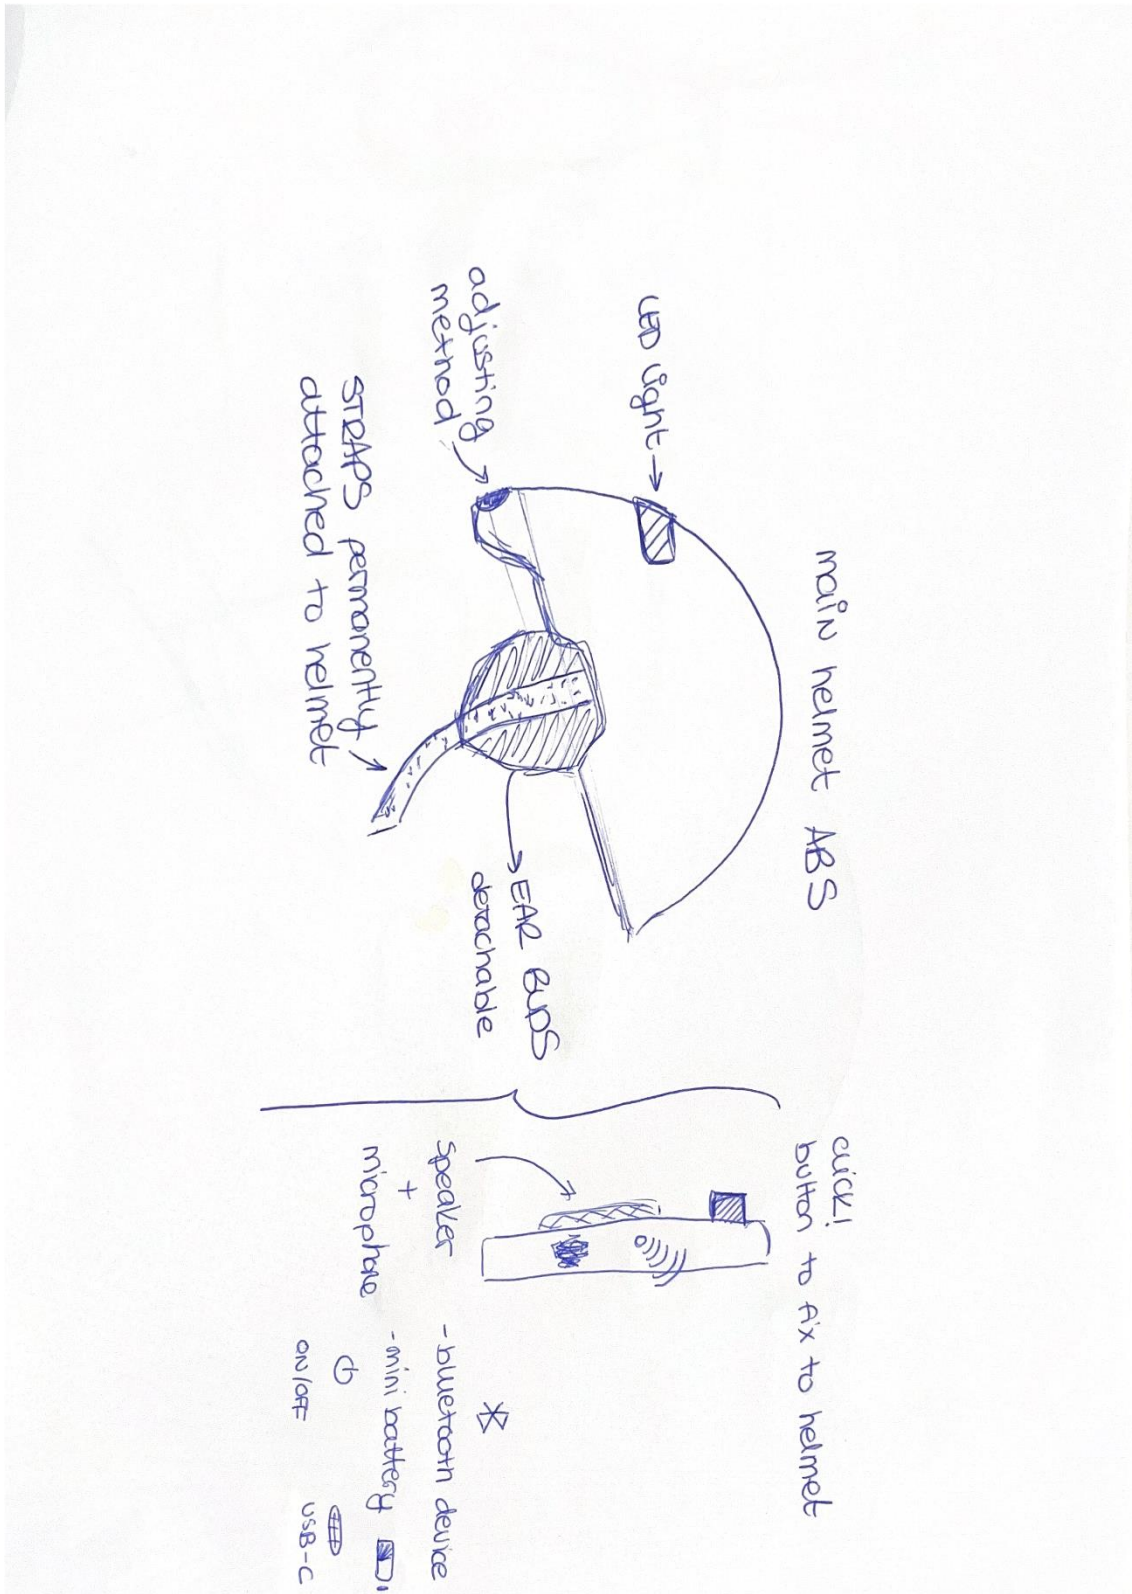 main helmet ABS
LED light
adjusting
method
STRAPS permanently
attached to helmet
EAR BUDS
detachable
click!
button to fix to helmet
speaker
+
microphone
- bluetooth device
- mini battery
ON/OFF
USB-C